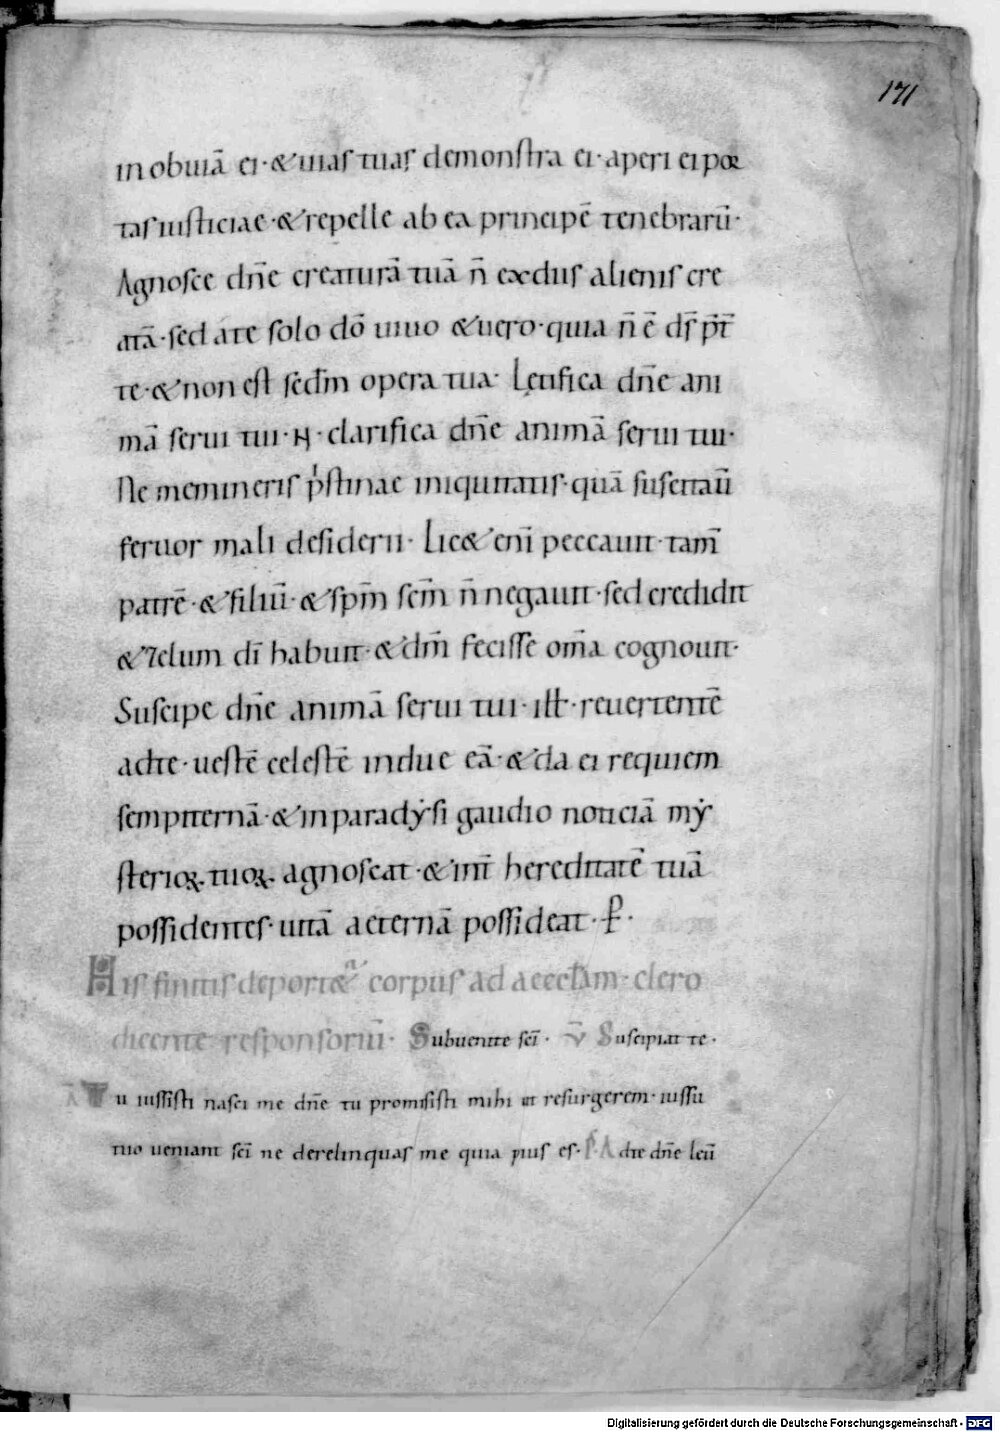 171
in obuiā ei · & uias tuas demonstra ei · aperi ei por
tas iusticiae · & repelle ab ea principē tenebrarū ·
Agnosce dn̄e creaturā tuā n̄ ex dus alienis cre
atā · sed a te solo dō uiuo & uero · quia n̄ ē ds̄ p̄t
te · & non est sec̄dm opera tua · Letifica dn̄e ani
mā serui tui · clarifica dn̄e animā serui tui ·
Ne memineris p̍stinae iniquitatis · quā suscitauī
feruor mali desiderii · Lic& eni̅ peccauit · tam̄
patrē · & filiū · & sp̄m sc̄m n̄ negauit · sed credidit
& zelum dī habuit · & dm̄ fecisse om̄a cognouit ·
Suscipe dn̄e animā serui tui · ill̶ · reuertentē
ad te · uestē celestē indue eā · & da ei requiem
sempiternā · & in paradẏsi gaudio noticiā mẏ
sterioꝝ tuoꝝ agnoscat · & int̄ hereditatē tuā
possidentes · uitā aeternā possideat · P̶ ·
His finitis deport&ᵃ corpus ad aecc̄lam · clero
dicente responsoriū · Subuenite sc̄i · v̄ Suscipiat te ·
A̅ Tu iussisti nasci me dn̄e tu promisisti mihi ut resurgerem · iussu
tuo ueniant sc̄i ne derelinquas me quia pius es · Ps̄ Ad te dn̄e leū
Digitalisierung gefördert durch die Deutsche Forschungsgemeinschaft - DFG